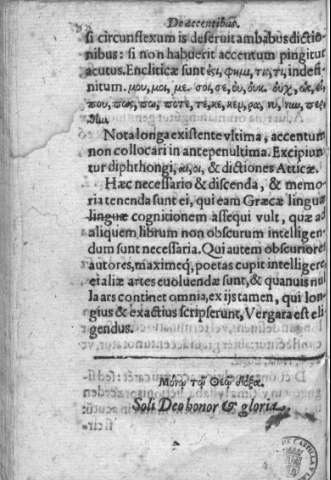 De accentibus.
si circunflexum is deseruit ambabus dictio-
nibus: si non habuerit accentum pingitur
acutus. Encliticæ sunt ἐςι, φημι, τις, τι, indefi-
nitum. μου, μοι, με. σοι, σε, οὐ, οὐκ. οὐχ, ὡς, εἰ,
που, πως, πω, ποτὲ, τὲ, κε, κεμ, ρα, νυ, νυμ, περ,
θω.
Nota longa existente vltima, accentum
non collocari in antepenultima. Excipiun
tur diphthongi, αι, οι, & dictiones Atticæ.
Hæc necessario & discenda, & memo-
ria tenenda sunt ei, qui eam Græcæ linguæ
linguæ cognitionem assequi vult, quæ ad
aliquem librum non obscurum intelligen-
dum sunt necessaria. Qui autem obscuriores
autores, maximeq; poetas cupit intelligere
ei aliæ artes euoluendæ sunt, & quanuis nul
la ars continet omnia, ex ijs tamen, qui lon
gius & exactius scripserunt, Vergara est eli
gendus.
Μόνῳ τῷ Θεῷ δόξα.
Soli Deo honor & gloria.
DE CASTILLA Y